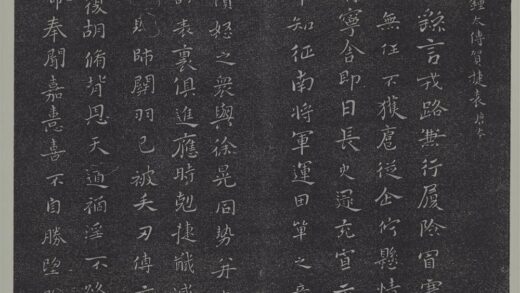 鍾太傅賀捷表
繇言戎路兼行履險冒寒
無任不獲扈從企佇懸情
寧舍即日長史逯充宣示
命知征南將軍運田單之奇
憤怒之眾與徐晃同勢并力
表裏俱進應時剋捷馘滅
賊帥關羽已被矢刃傅方
覆胡脩背恩天道禍淫不終
命奉聞嘉憙喜不自勝望路